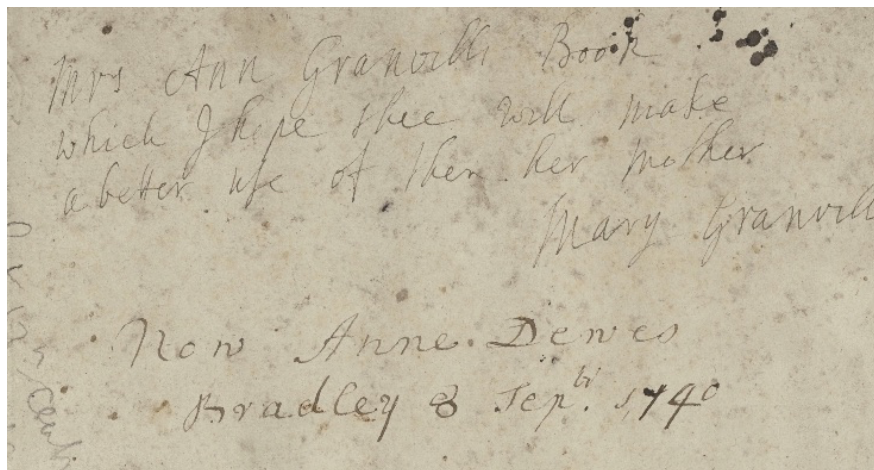 Mrs Ann Granvills Book
which I hope shee will make
a better use of then her mother
Mary Granvill
Now Anne Dewes
Bradley 8 Sepbr. 1740